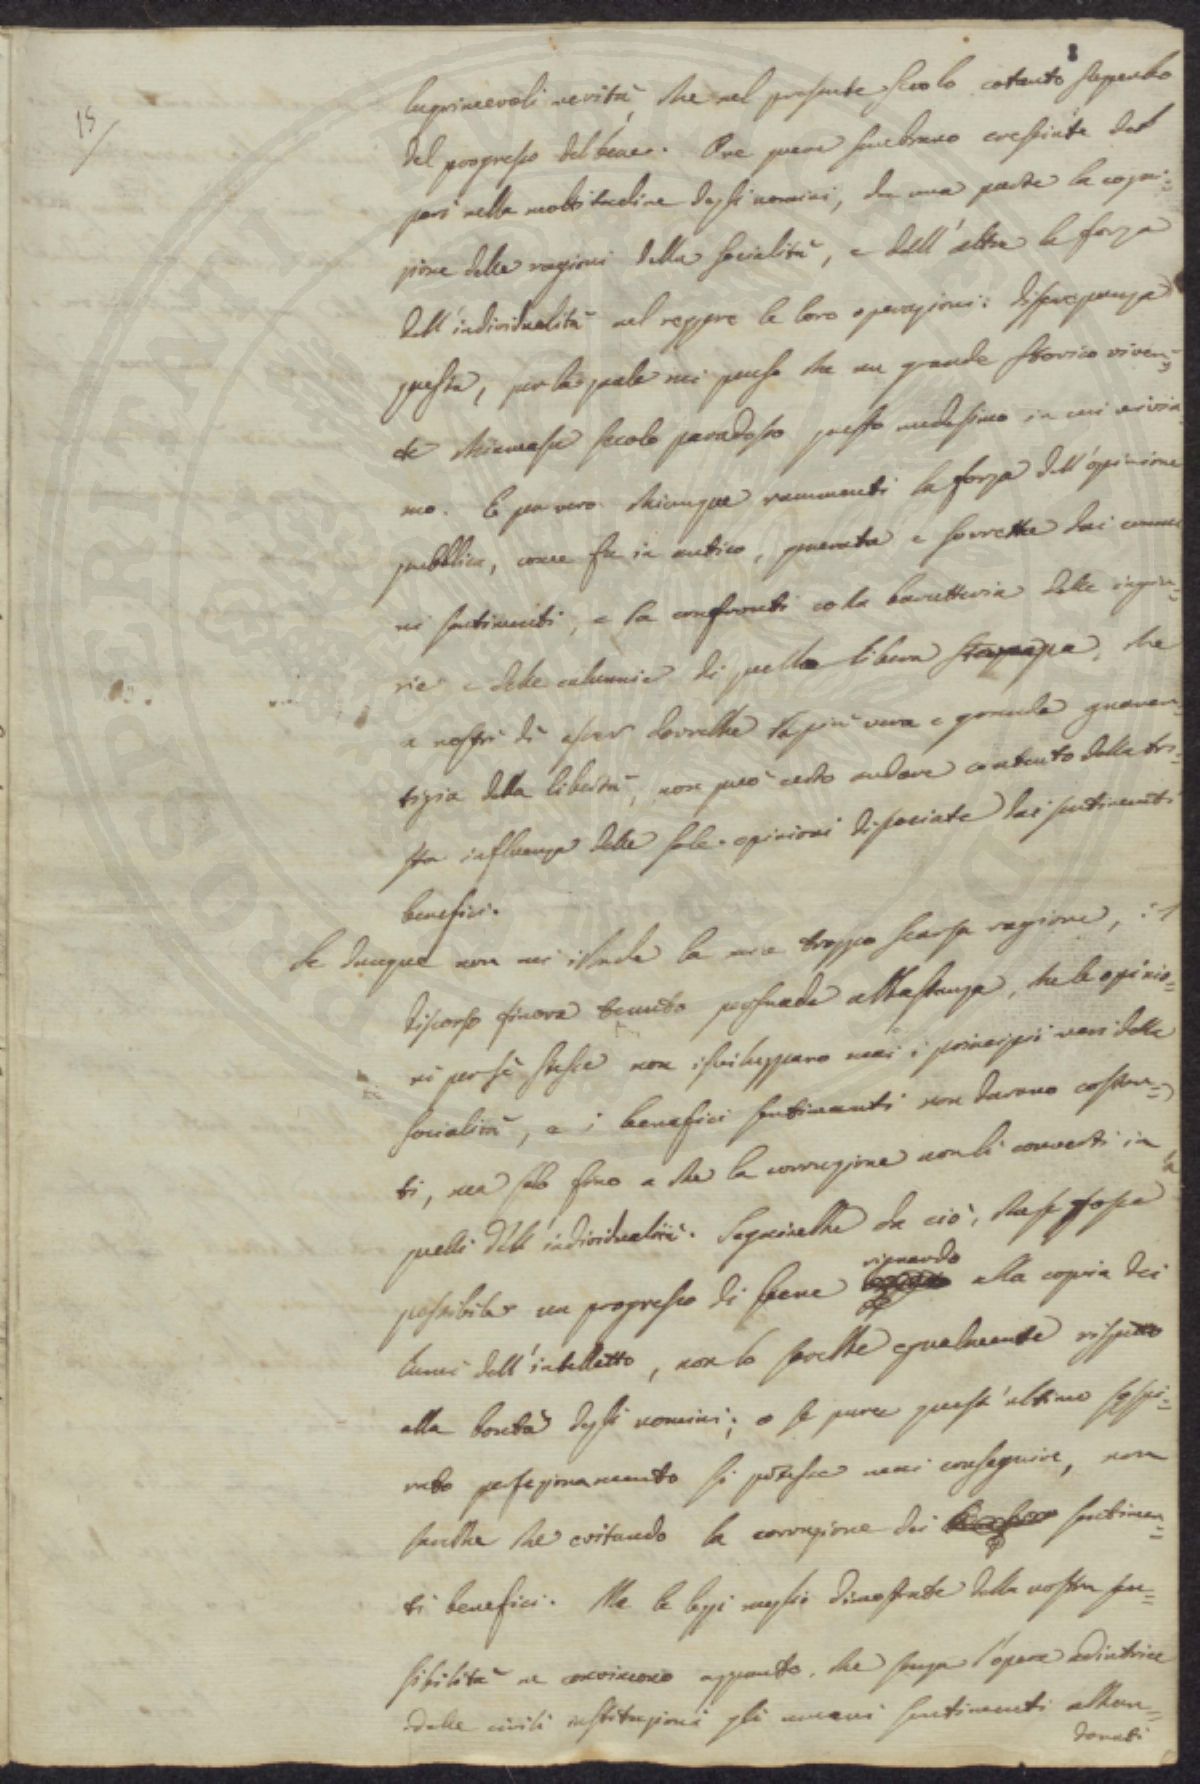 8
15
lagrimevoli verità, che nel presente secolo cotanto superbo
del progresso del bene. Ove pure sembrano cresciute del
pari nella moltitudine degli uomini, da una parte la cogni=
zione delle ragioni della socialità, e dall'altra la forza
dell'individualità nel reggere le loro operazioni: discrepanza
questa, per la quale mi penso che un grande storico viven=
te chiamasse secolo paradosso questo medesimo in cui vivia
mo. E per vero chiunque rammenti la forza dell'opinione
pubblica, come fu in antico, guardata e sorretta dai comu
ni sentimenti, e la confronti colla baratteria delle ingiu=
rie e delle calunnie di quella libera stampa, che
a nostri dì esser dovrebbe la più vera e grande guaren=
tigia della libertà, non può certo andare contento della tri=
sta influenza delle sole opinioni dissociate dai sentimenti
benefici.
Se dunque non mi illude la mia troppo scarsa ragione, il
discorso finora tenuto persuade abbastanza, che le opinio=
ni per sè stesse non isviluppano mai i principii veri della
socialità, e i benefici sentimenti non durano costan=
ti, ma solo fino a che la corruzione non li converti in
quelli dell'individualità. Seguirebbe da ciò, che se fosse
possibile un progresso di bene riguardo alla copia dei
lumi dell'intelletto, non lo sarebbe egualmente rispetto
alla bontà degli uomini; o se pure quest'ultimo sospi=
rato perfezionamento si potesse mai conseguire, non
sarebbe che evitando la corruzione dei sentimen=
ti benefici. Ma le leggi meglio dimostrate della nostra sen=
sibilità ne convincono appunto, che senza l'opera adiutrice
delle civili instituzioni gli umani sentimenti abban=
donati